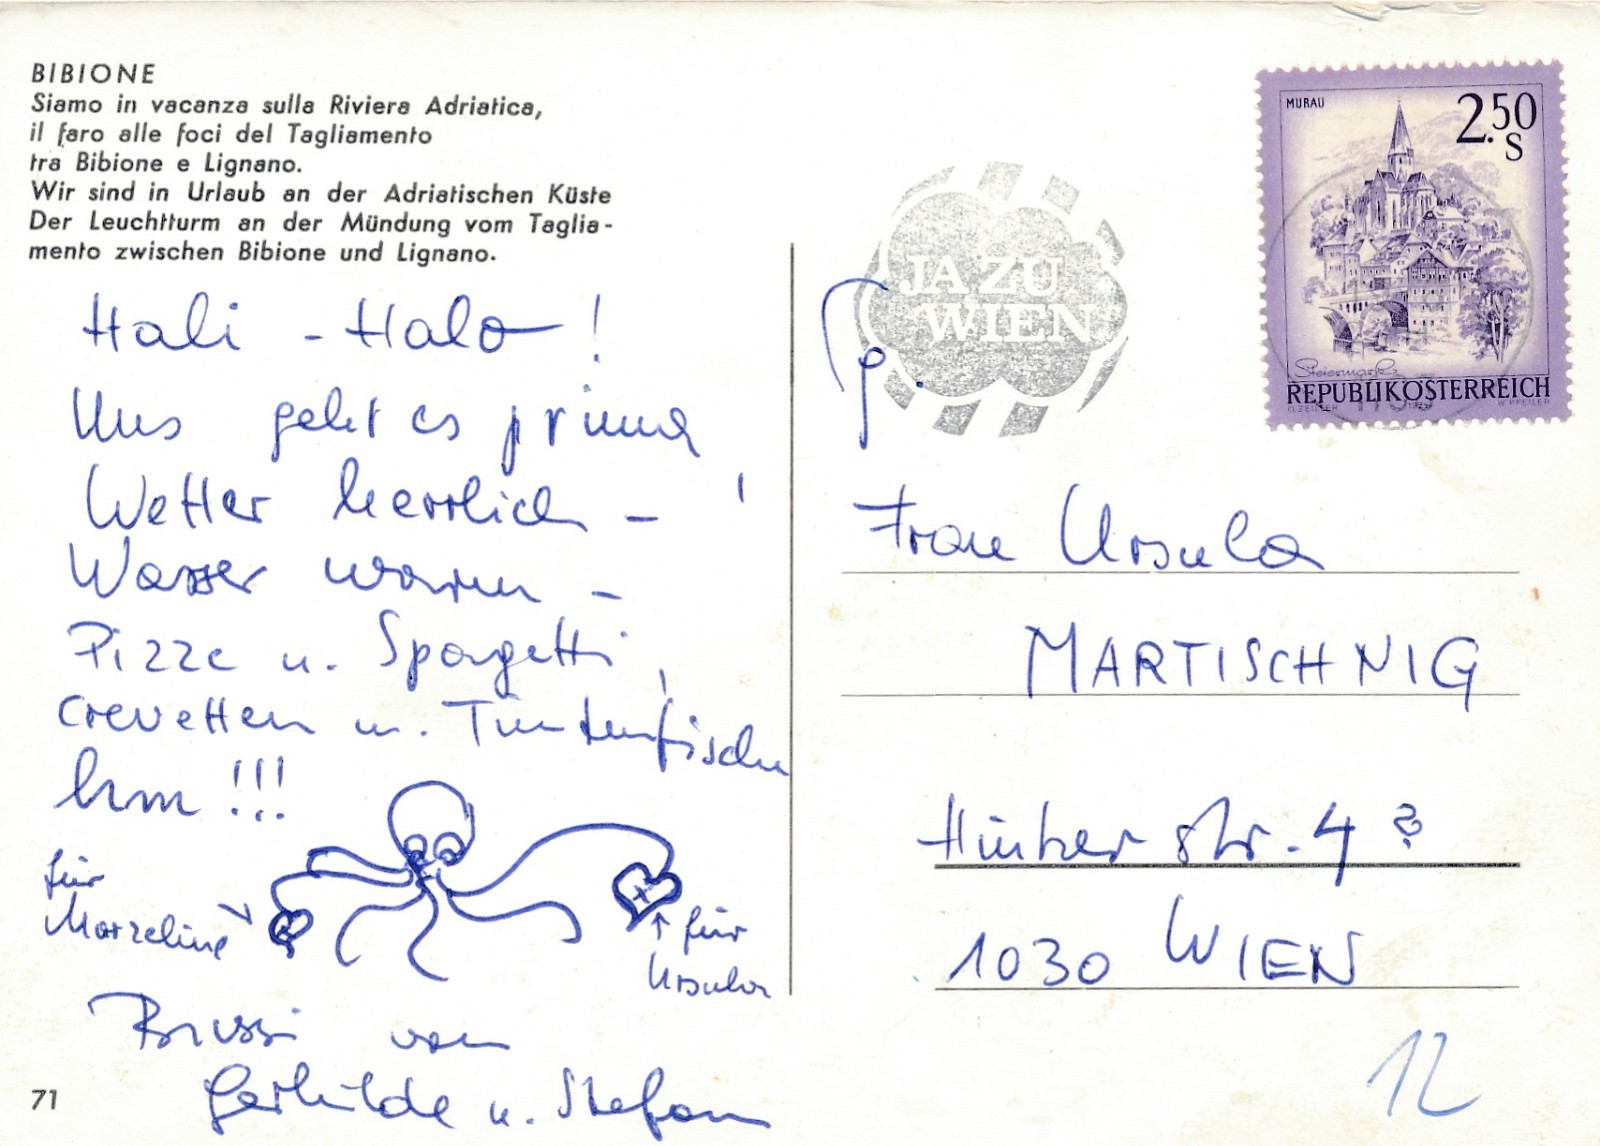 BIBIONE
Siamo in vacanza sulla Riviera Adriatica,
il faro alle foci del Tagliamento
tra Bibione e Lignano.
Wir sind in Urlaub an der Adriatischen Küste
Der Leuchtturm an der Mündung vom Taglia-
mento zwischen Bibione und Lignano.
Hali - Halo!
Uns geht es prima
Wetter herrlich -
Wasser warm -
Pizze u. Spargetti,
Crevetten u. Tintenfische
hm!!!
für
Marzeline
für
Ursula
Bussi von
Gerhilde u. Stefan
71
JA ZU
WIEN
MURAU
2.50
S
Steiermark
REPUBLIK ÖSTERREICH
Frau Ursula
MARTISCHNIG
str. 4?
1030 WIEN
12